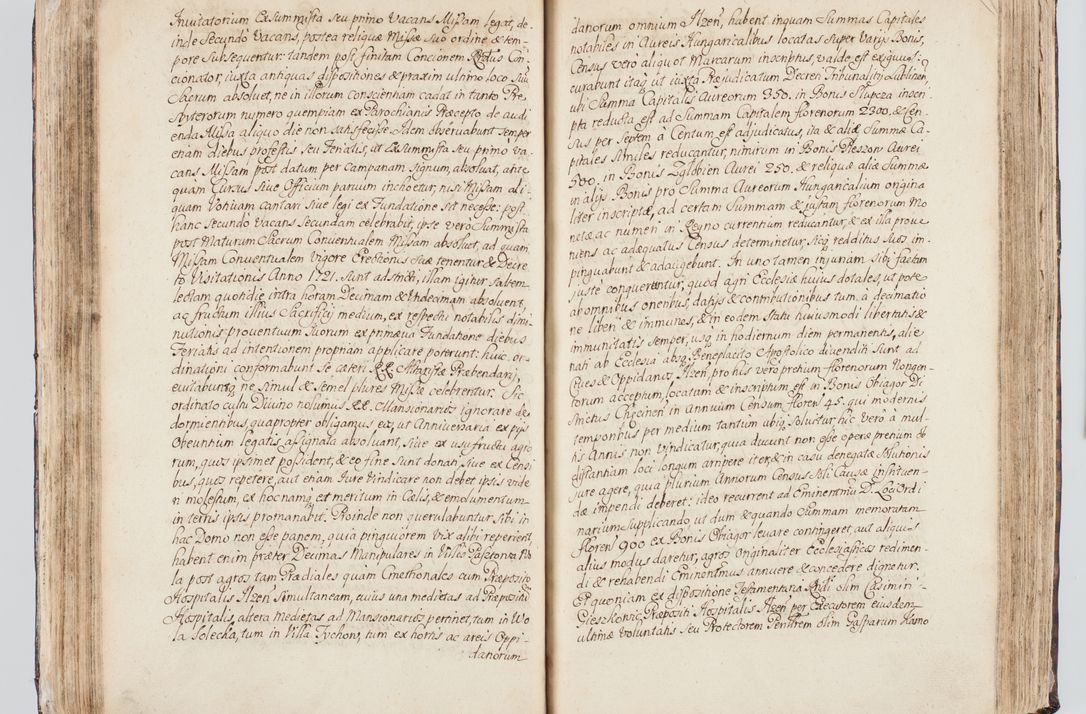 Invitatorium Ex Summista seu primo vacans Missam legat, de-
inde Secundo vacans, postea reliquæ Missæ suo ordine & tem-
pore subsequentur: tandem post finitam Concionem Rndus Con-
cionator, iuxta antiquas dispositiones & praxim ultimo loco suu
Sacrum absoluet, ne in illorum Conscientiam cadat in tanto Præ-
sbyterorum numero quempiam ex Parochianis Præcepto de audi-
enda Missa aliquo die non satisfecisse. Idem observabunt semper
etiam diebus profestis seu Ferialis, ut Ex Summista seu primo va-
cans Missam post datum per Campanam Signum, absoluat, ante
quam Cursus sive Officium parvum inchoetur, nisi Missam ali-
quam Votivam cantari sive legi ex Fundatione sit necesse: post
hanc Secundo vacans Secundam celebrabit, ipse vero Summista
post Maturum Sacrum Conventualem Missam absoluet, ad quam
Missam Conventualem vigore Erectionis suæ tenentur, & Decre-
to Visitationis Anno 1721. sunt adstricti, illam igitur saltem
lectam quotidie intra horam Decimam & Undecimam absolvent,
ac fructum illius Sacrificij medium, ex respectu notabilis dimi-
nutionis proventuum suorum ex primæva Fundatione diebus
Ferialis ad intentionem propriam applicare poterunt: huic or-
dinationi conformabunt se cæteri RR. Altaristæ Præbendarij,
evitabuntq ne simul & semel plures Missæ celebrentur. Sic
ordinato cultu Divino nolumus RR. Mansionarios ignorare de
dormientibus, quapropter obligamus eos, ut Anniversaria ex pijs
Obeuntium legatis assignata absoluant, sive ex usu fructu agro-
rum, quos ipsimet possident, & eo fine sunt donati, sive ex Censi
bus, quos repetere, aut etiam Jure vindicare non debet ipsis vide
ri molestum, ex hoc namq et meritum in Cælis, & emolumentum
in terris ipsis promanabit. Proinde non querulabuntur sibi in
hac Domo non esse panem, quia pinguiorem vix alibi reperient,
habent enim præter Decimas Manipulares in Villis
la post agros tam Prædiales quam Cmethonales cum Præposito
Hospitalis Ilzen simultaneam, cuius una medietas ad Præpositu
Hospitalis, altera medietas ad Mansionarios pertinet, tam in Wo
la Solecka, tum in Villa Tychow, tum ex hortis ac areis Oppi-
danorum
danorum omnium Ilzen, habent inquam Summas Capitales
notabiles in Aureis Hungaricalibus locatas super varijs Bonis,
Census vero aliquot Marcarum inscriptus, valde est exiguus:
curabunt itaq ut iuxta Præjudicatum Decreti Tribunality Lublinen,
ubi Summa Capitalis Aureorum 350. in Bonis Slupcza inscri-
pta reducta est ad Summam Capitalem florenorum 2300, & Cen-
sus per Septem a Centum est adjudicatus, ita & aliæ Summæ Ca-
pitales similes reducantur, nimirum in Bonis Pleszow Aurei
500. in Bonis Zglobien Aurei 250. & reliquæ aliæ Summæ
in alijs Bonis pro Summa Aureorum Hungaricalium origina
liter inscriptæ, ad certam Summam & iustam florenorum Mo
netæ ac numeri in Regno currentium reducantur, & ex illa prove
niens ac adæquatus Census determinetur, sicq redditus suos im-
pinguabunt & adaugebunt. In uno tamen injuriam sibi factam
juste conqueruntur, quod agri Ecclesiæ huius dotales, utpote
ab omnibus oneribus datijs & contributionibus tum a decimatio
ne liberi & immunes, & in eodem statu huiusmodi libertatis &
immunitatis semper, usq in hodiernum diem permanentes, alie
nati ab Ecclesia absq Beneplacito Apostolico divenditi sunt ad
Cives & Oppidanos, Ilzen, pro his vero pretium florenorum Nongen-
torum acceptum, locatum & inscriptum est in Bonis Obiazgor Di-
strictus Checinen in Annuum Censum floren 45. qui modernis
temporibus per medium tantum ubiq solvitur, hic vero a mul-
tis Annis non vindicatur, quia ducunt non esse operæ pretium ob
distantiam loci longum arripere iter, & in casu denegatæ Solutionis
jure agere, quia plurium Annorum Census soli Causæ instituen-
dæ impendi deberet: ideo recurrent ad Eminentmu D. Loci Ordi
narium supplicando ut dum & quando Summam memoratam
floren 900 ex Bonis Obiazgor levare contingeret, aut aliquis
alius modus daretur, agros originaliter Ecclesiasticos redimen-
di & rehabendi Eminentmus annuere & concedere dignetur.
Et quoniam ex dispositione Testamentaria Rndi olim Casimiri
Cieszkowic, Præpositi Hospitalis Ilzen per Executorem eiusdem
ultimæ voluntatis seu Protectorem Perillrem olim Gasparum